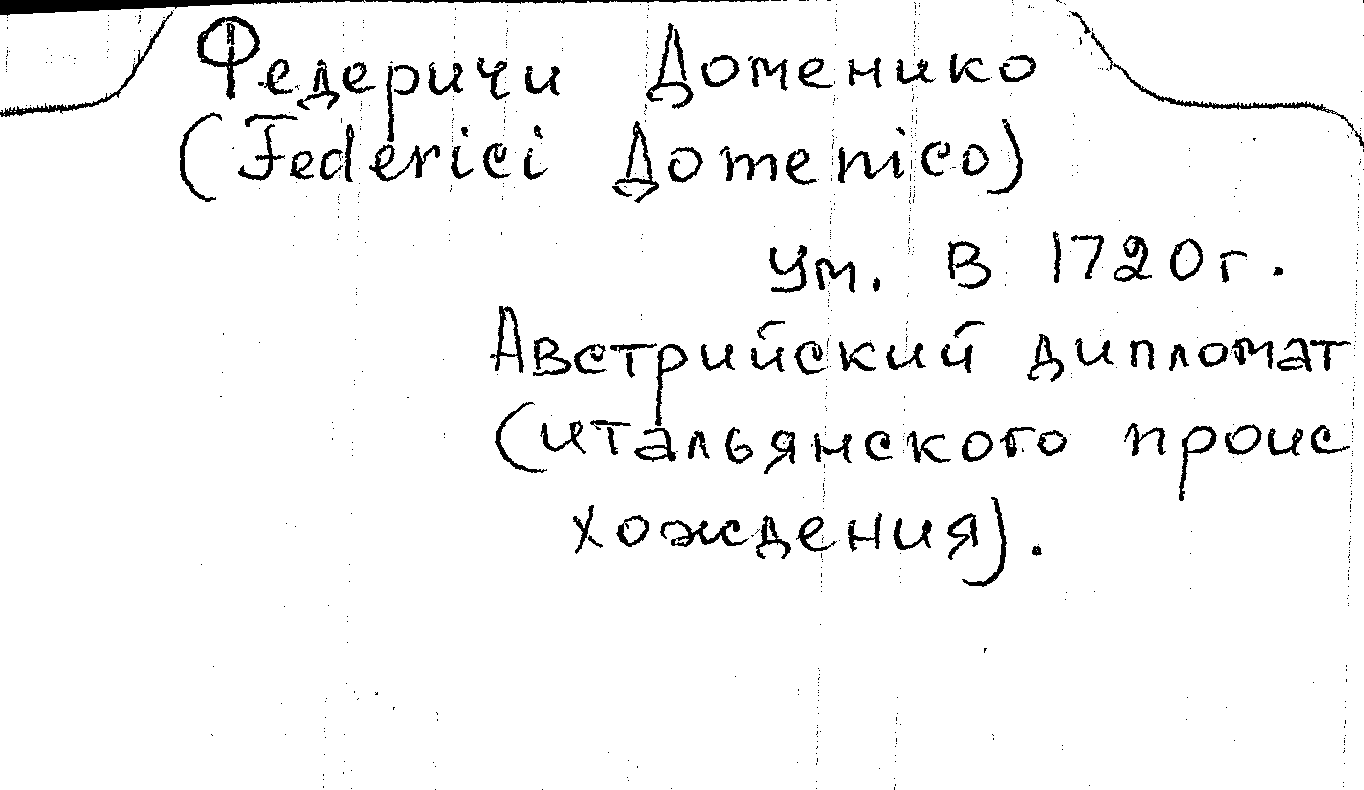 Федеричи Доменико
(Federici Доmenico)
ум. в 1720г.
Австрийский дипломат
(итальянского проис
хождения).